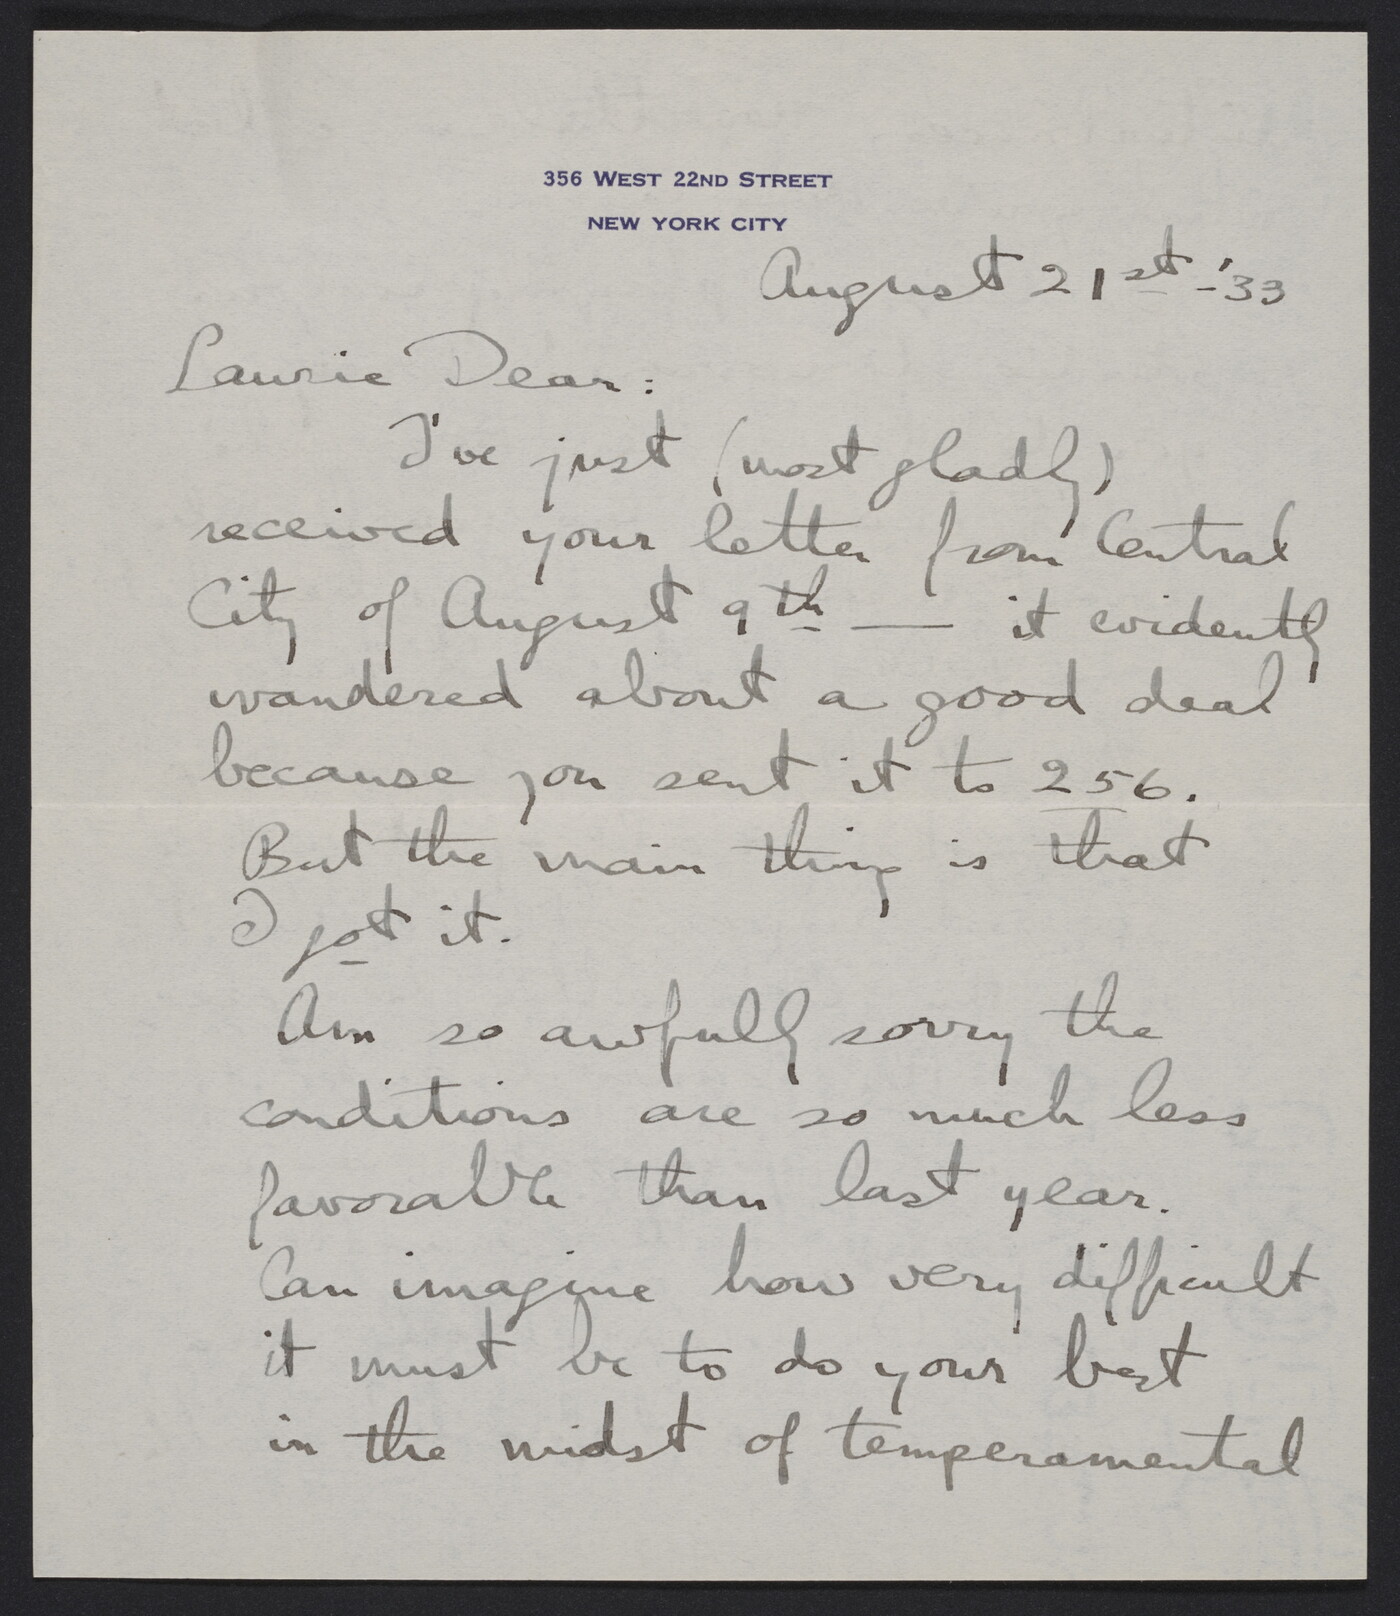 356 WEST 22ND STREET
NEW YORK CITY
August 21st - '33
Laurie Dear:
I've just (most gladly)
received your letter from Central
City of August 9th — it evidently
wandered about a good deal
because you sent it to 256.
But the main thing is that
I got it.
Am so awfully sorry the
conditions are so much less
favorable than last year.
Can imagine how very difficult
it must be to do your best
in the midst of temperamental